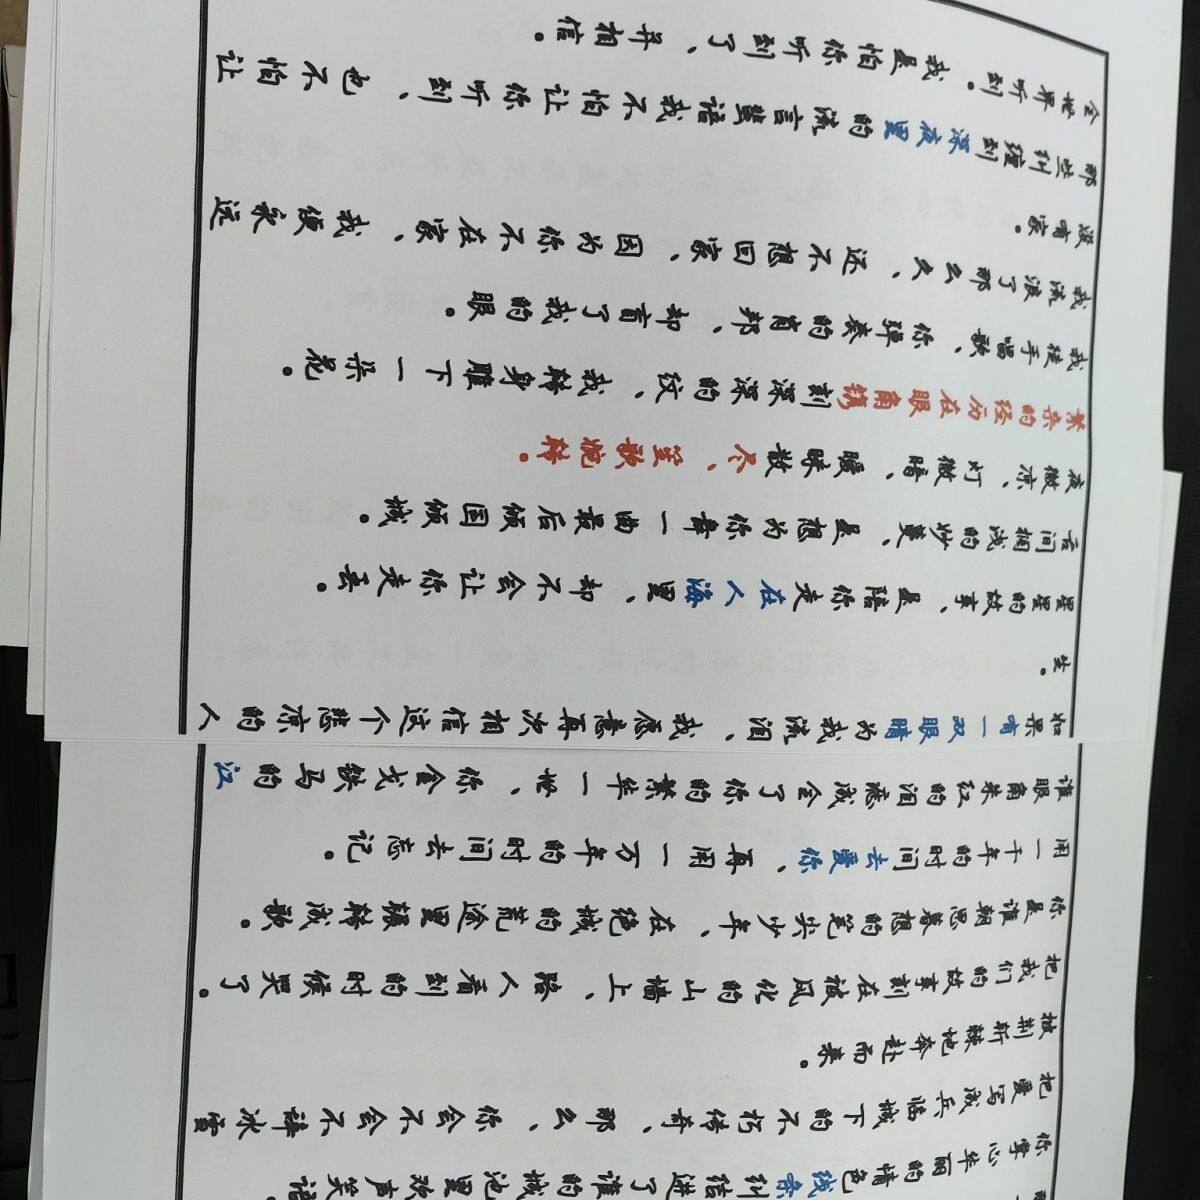 你掌心华丽的情色线索纠结进了谁的城池里欢声笑语
把爱写成兵临城下的不朽传奇、那么、你会不会不辞冰雪
披荆斩棘地奔赴而来。
把我们的故事刻在被风化的山墙上、路人看到的时候哭了。
你是谁朝思暮想的笔尖少年、在绝城的荒途里辗转成歌。
用一千年的时间去爱你、再用一万年的时间去忘记。
谁眼角朱红的泪痣成全了你的繁华一世、你金戈铁马的江
如果有一双眼睛为我流泪、我愿意再次相信这个悲凉的人
生。
星星的故事、是陪你走在人海里、却不会让你走丢。
舌间搁浅的妙蔓、是想为你舞一曲最后倾国倾城。
夜微凉、灯微暗、暧昧散尽、笙歌婉转。
繁杂的经历在眼角镌刻深深的纹、我转身雕下一朵花。
我徒手唱歌、你弹奏的肖邦、却盲了我的眼。
我流浪了那么久、还不想回家、因为你不在家、我便永远
没有家。
那些纠缠到深夜里的流言蜚语我不怕让你听到、也不怕让
全世界听到。我是怕你听到了、并相信。